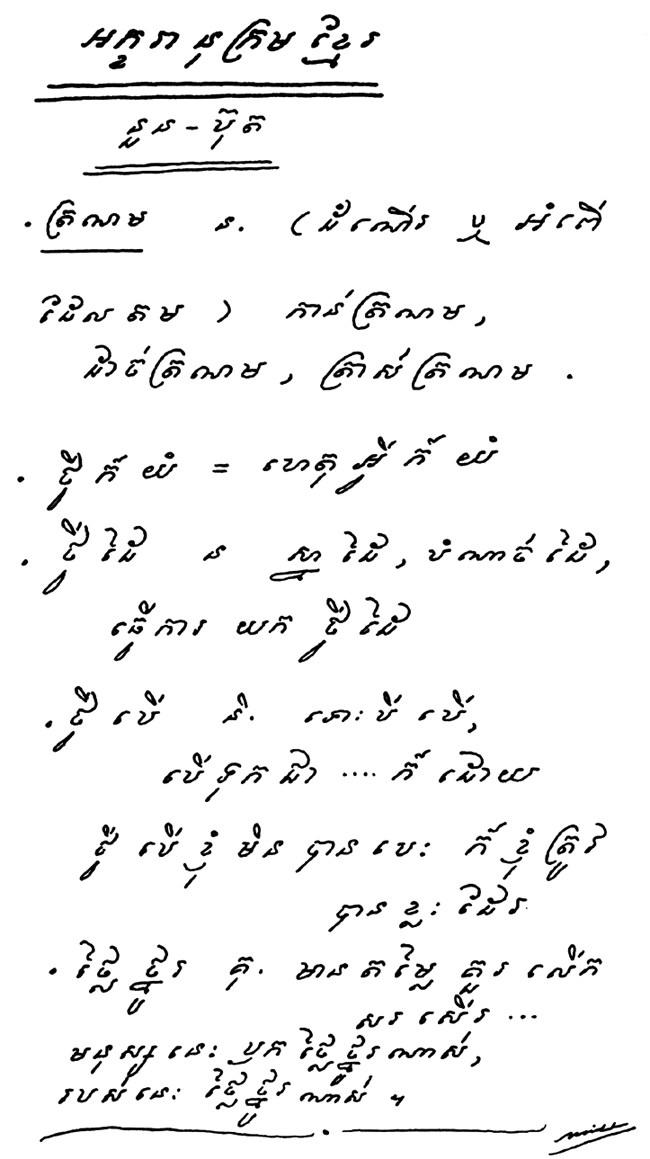 អក្ខរានុក្រមខ្មែរ
នួន-ប៊ុត
. ត្រណាម ន. (ដំណើរ ឬ អំពើ
ដែលតម) កាន់ត្រណាម,
ដាច់ត្រណាម, ត្រាស់ត្រណាម .
. ថ្វីក៏យំ = ហេតុអ្វីក៏យំ
. ថ្វីដៃ ន ស្នាដៃ, បំណាច់ដៃ,
ធ្វើការ យក ថ្វីដៃ
. ថ្វីបើ និ. ទោះបីបើ,
បើទុកជា .... ក៏ ដោយ
ថ្វីបើខ្ញុំមិនបានបេះ ក៏ខ្ញុំត្រូវ
បានខ្លះដែរ
. ថ្លៃថ្នូរ គុ. មានតម្លៃគួរលើក
សរសើរ ...
មនុស្សនេះឫកថ្លៃថ្នូរណាស់,
របស់នេះថ្លៃថ្នូរណាស់ ។